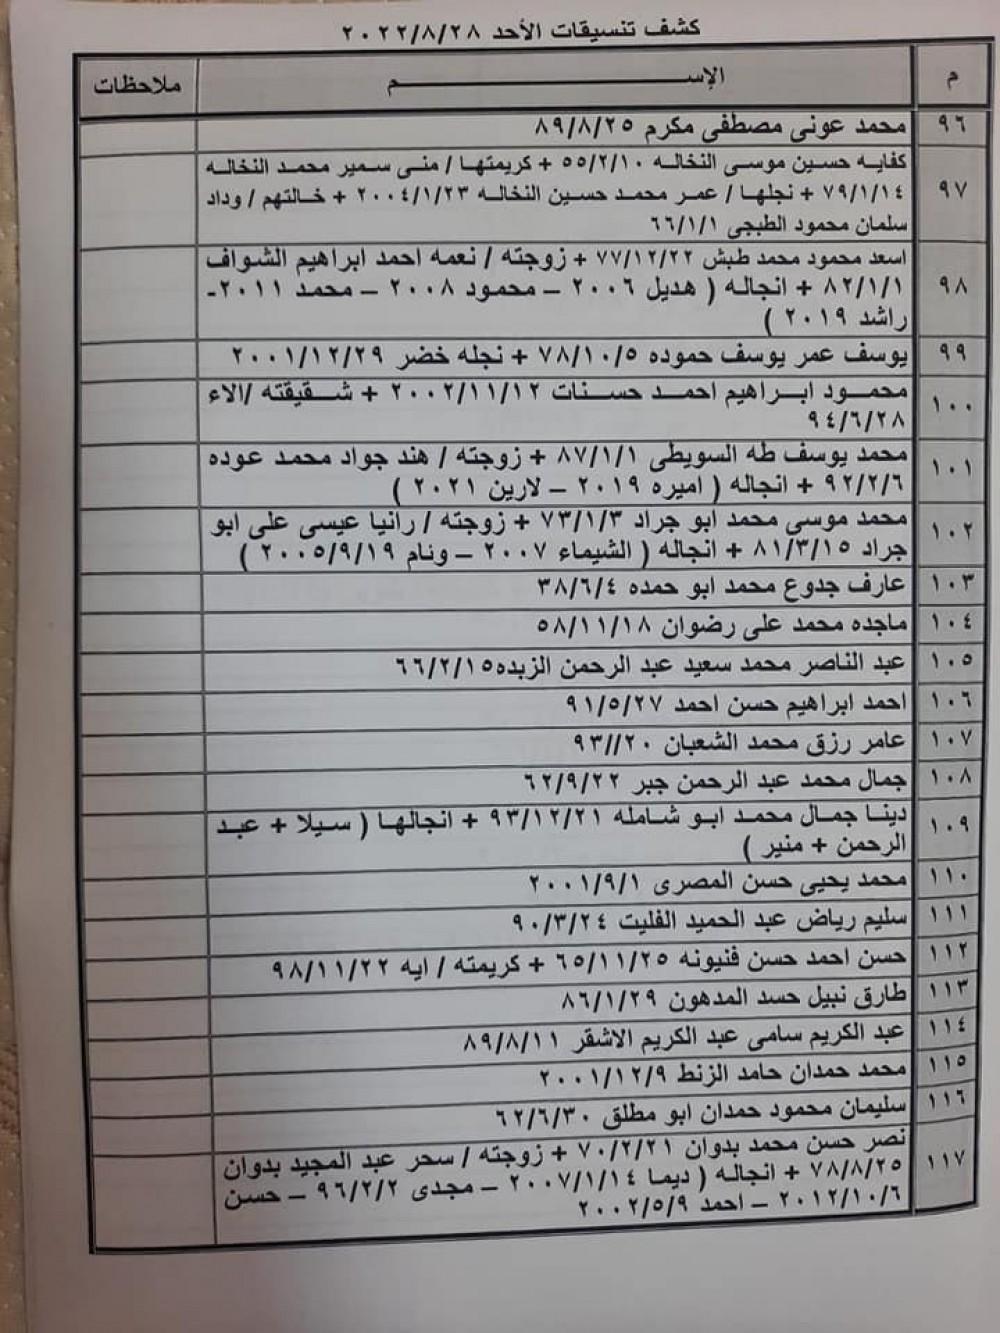 كشف تنسيقات الأحد ٢٠٢٢/٨/٢٨
م الإســـم ملاحظات
٩٦ محمد عونى مصطفى مكرم ٨٩/٨/٢٥
كفايه حسين موسى النخاله ٥٥/٢/١٠ + كريمتها / منى سمير محمد النخاله
٩٧ ٧٩/١/١٤ + نجلها / عمر محمد حسين النخاله ٢٠٠٤/١/٢٣ + خالتهم / وداد
سلمان محمود الطبجى ٦٦/١/١
اسعد محمود محمد طبش ٧٧/١٢/٢٢ + زوجته / نعمه احمد ابراهيم الشواف
٩٨ ٨٢/١/١ + انجاله ( هديل ٢٠٠٦ – محمود ٢٠٠٨ – محمد ٢٠١١-
راشد ٢٠١٩ )
٩٩ يوسف عمر يوسف حموده ٧٨/١٠/٥ + نجله خضر ٢٠٠١/١٢/٢٩
١٠٠ محمود ابراهيم احمد حسنات ٢٠٠٢/١١/١٢ + شقيقته /الاء
٩٤/٦/٢٨
١٠١ محمد يوسف طه السويطى ٨٧/١/١ + زوجته / هند جواد محمد عوده
٩٢/٢/٦ + انجاله ( اميره ٢٠١٩ – لارين ٢٠٢١ )
١٠٢ محمد موسى محمد ابو جراد ٧٣/١/٣ + زوجته / رانيا عيسى على ابو
جراد ٨١/٣/١٥ + انجاله ( الشيماء ٢٠٠٧ – ونام ٢٠٠٥/٩/١٩ )
١٠٣ عارف جدوع محمد ابو حمده ٣٨/٦/٤
١٠٤ ماجده محمد على رضوان ٥٨/١١/١٨
١٠٥ عبد الناصر محمد سعيد عبد الرحمن الزبده٦٦/٢/١٥
١٠٦ احمد ابراهيم حسن احمد ٩١/٥/٢٧
١٠٧ عامر رزق محمد الشعبان ٩٣//٢٠
١٠٨ جمال محمد عبد الرحمن جبر ٦٢/٩/٢٢
١٠٩ دينا جمال محمد ابو شامله ٩٣/١٢/٢١ + انجالها ( سيلا + عبد
الرحمن + منير )
١١٠ محمد يحيى حسن المصرى ٢٠٠١/٩/١
١١١ سليم رياض عبد الحميد الفليت ٩٠/٣/٢٤
١١٢ حسن احمد حسن فنيونه ٦٥/١١/٢٥ + كريمته / ايه ٩٨/١١/٢٢
١١٣ طارق نبيل حسد المدهون ٨٦/١/٢٩
١١٤ عبد الكريم سامى عبد الكريم الاشقر ٨٩/٨/١١
١١٥ محمد حمدان حامد الزنط ٢٠٠١/١٢/٩
١١٦ سليمان محمود حمدان ابو مطلق ٦٢/٦/٣٠
نصر حسن محمد بدوان ٧٠/٢/٢١ + زوجته / سحر عبد المجيد بدوان
١١٧ ٧٨/٨/٢٥ + انجاله ( ديما ٢٠٠٧/١/١٤ – مجدى ٩٦/٢/٢ – حسن
٢٠١٢/١٠/٦ – احمد ٢٠٠٢/٥/٩